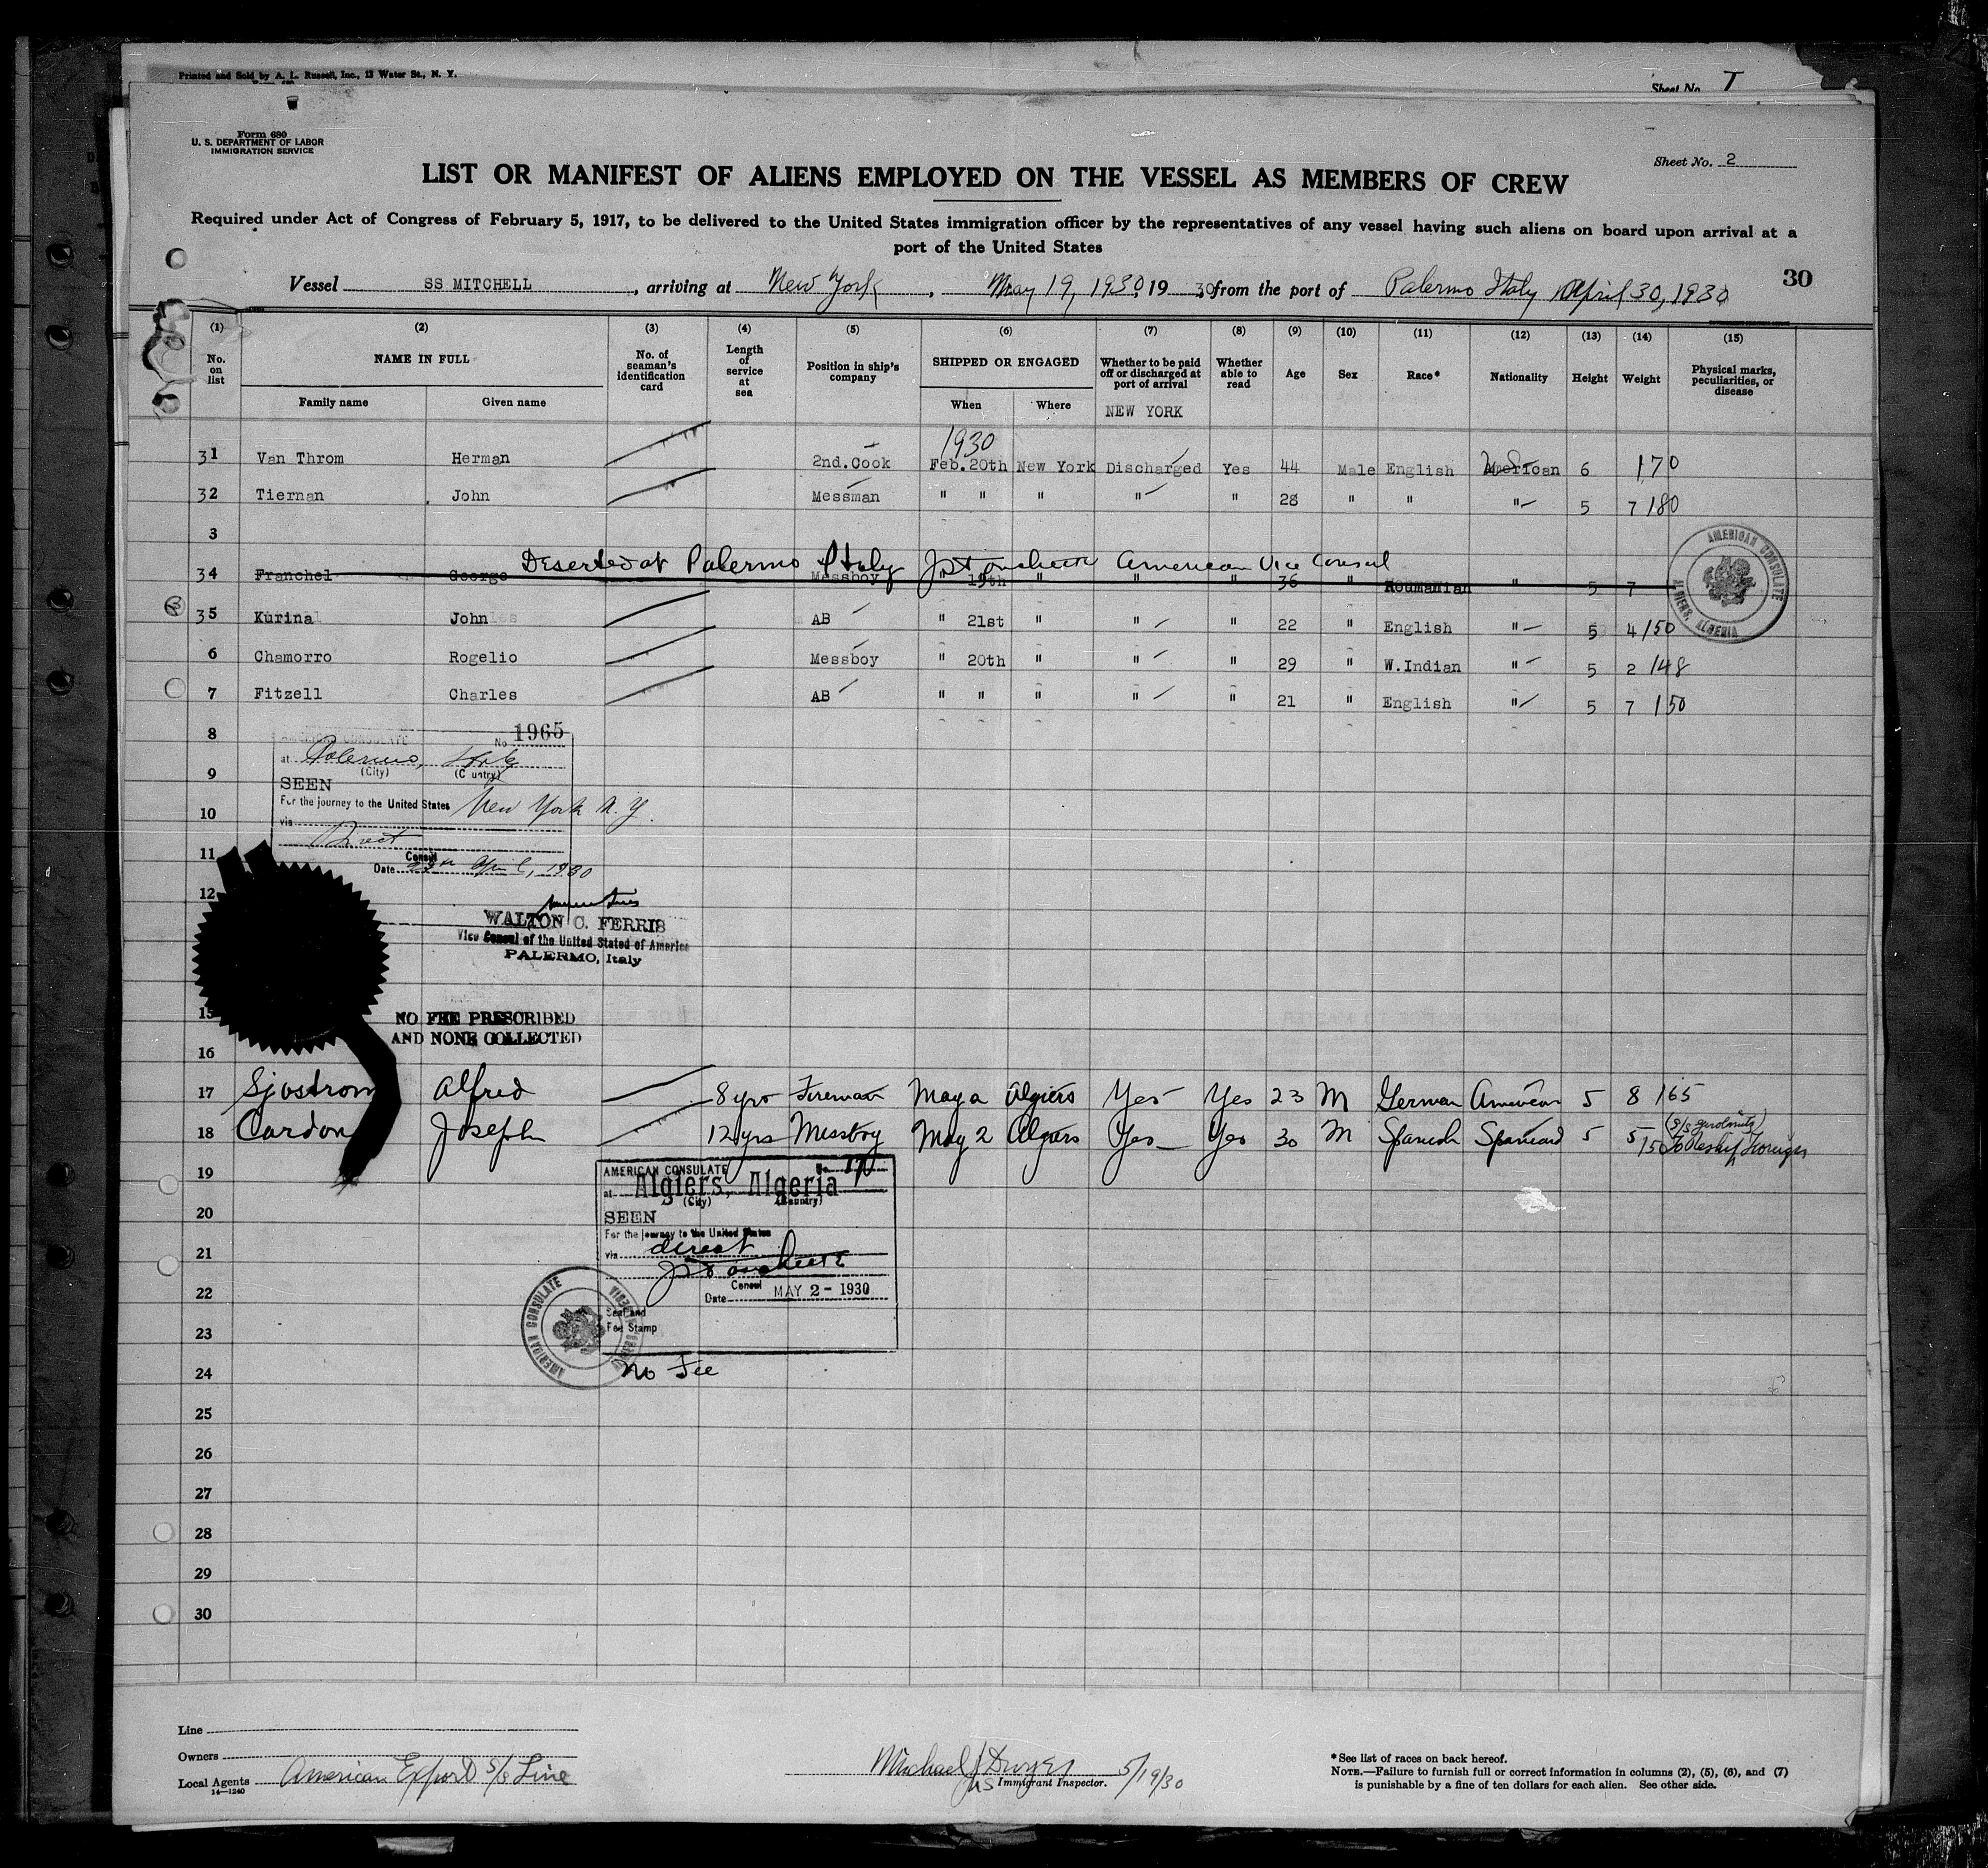 Printed and Sold by A. L. Russell, Inc., 13 Water St., N. Y.
Sheet No. T
Form 680
U. S. DEPARTMENT OF LABOR
IMMIGRATION SERVICE
Sheet No. 2
LIST OR MANIFEST OF ALIENS EMPLOYED ON THE VESSEL AS MEMBERS OF CREW
Required under Act of Congress of February 5, 1917, to be delivered to the United States immigration officer by the representatives of any vessel having such aliens on board upon arrival at a
port of the United States
30
Vessel SS MITCHELL, arriving at New York, May 19, 1930, 19 30, from the port of Palermo Italy April 30, 1930
(1) (2) (3) (4) (5) (6) (7) (8) (9) (10) (11) (12) (13) (14) (15)
No. on list NAME IN FULL No. of seaman's identification card Length of service at sea Position in ship's company SHIPPED OR ENGAGED Whether to be paid off or discharged at port of arrival Whether able to read Age Sex Race* Nationality Height Weight Physical marks, peculiarities, or disease
Family name Given name When Where NEW YORK
1930
31 Van Throm Herman 2nd.Cook Feb.20th New York Discharged Yes 44 Male English American 6 170
32 Tiernan John Messman " " " " " 28 " " " 5 7 180
3
Deserted at Palermo Italy American Vice Consul
34 Franchel George Messboy 19th " " " 36 " Roumanian " 5 7
35 Kurina John AB " 21st " " " 22 " English " 5 4 150
6 Chamorro Rogelio Messboy " 20th " " " 29 " W.Indian " 5 2 148
7 Fitzell Charles AB " " " " " 21 " English " 5 7 150
AMERICAN CONSULATE
ALGIERS, ALGERIA
8
AMERICAN CONSULATE No. 1965
at Palermo, Italy
(City) (Country)
9
SEEN
For the journey to the United States New York N.Y.
10
via Direct
11
Consul
Date April, 1930
12
WALTON C. FERRIS
Vice Consul of the United Stated of America
PALERMO, Italy
15
NO FEE PRESCRIBED
AND NONE COLLECTED
16
17 Sjostrom Alfred 8 yrs Fireman May 2 Algiers Yes Yes 23 M German American 5 8 165
18 Cardon Joseph 12 yrs Messboy May 2 Algiers Yes Yes 30 M Spanish Spaniard 5 5 150
19
AMERICAN CONSULATE No. 170
at Algiers, Algeria
(City) (Country)
20
SEEN
For the journey to the United States
21
via direct
22
Consul
Date MAY 2 - 1930
Seal and
Fee Stamp
23
AMERICAN CONSULATE
ALGIERS, ALGERIA
24
No Fee
25
26
27
28
29
30
Line
Owners
Local Agents American Export S/S Line
14—1240
Michael J Dwyer 5/19/30
Immigrant Inspector.
*See list of races on back hereof.
NOTE.—Failure to furnish full or correct information in columns (2), (5), (6), and (7)
is punishable by a fine of ten dollars for each alien. See other side.